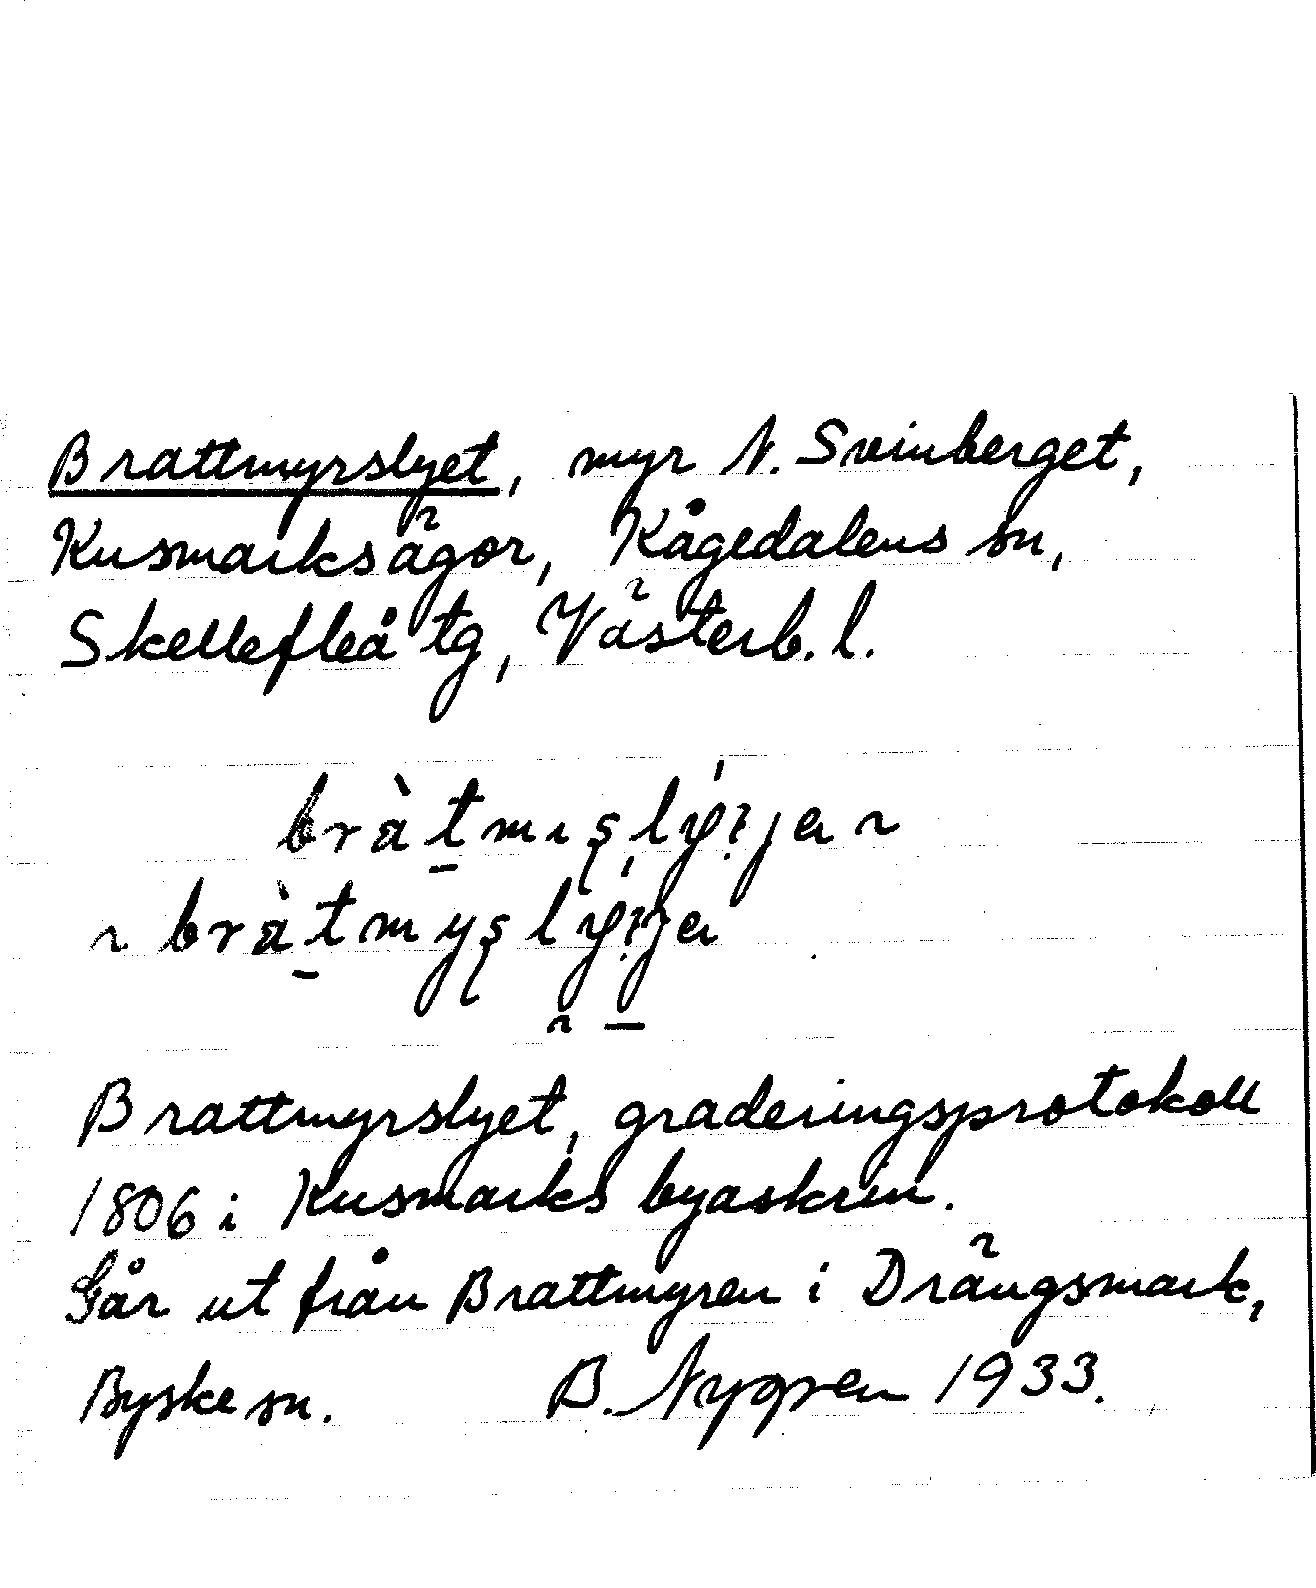 Brattmyrslyet, myr N. Svinberget,
Kusmarksägor, Kågedalens sn,
Skellefteå tg, Västerb. l.
Brattmyrslyet, graderingsprotokoll
1806 i Kusmarks byaskrin.
Går ut från Brattmyren i Drängsmark,
Byske sn. B. Nygren 1933.